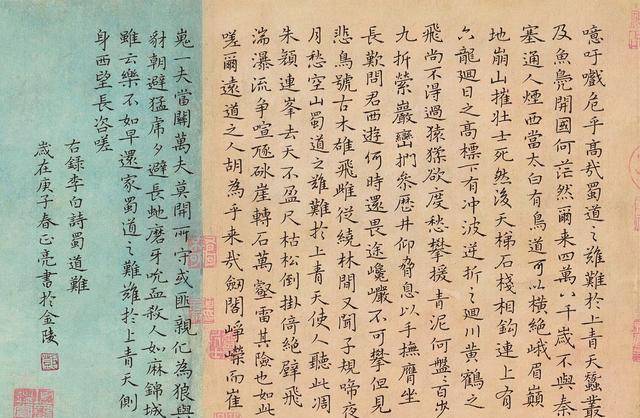 噫吁戲危乎高哉蜀道之難難於上青天蠶叢
及魚鳧開國何茫然爾来四萬八千歲不與秦
塞通人煙西當太白有鳥道可以橫絕峨眉巔
地崩山摧壯士死然後天梯石棧相鉤連上有
六龍迴日之高標下有冲波逆折之迴川黃鶴之
飛尚不得過猿猱欲度愁攀援青泥何盤〻百步
九折縈巖巒捫參歷井仰脅息以手撫膺坐
長歎問君西遊何時還畏途巉巖不可攀但見
悲鳥號古木雄飛雌從繞林間又聞子規啼夜
月愁空山蜀道之難難於上青天使人聽此凋
朱顏連峯去天不盈尺枯松倒掛倚絕壁飛
湍瀑流爭喧豗砯崖轉石萬壑雷其險也如此
嗟爾遠道之人胡為乎来哉劒閣崢嶸而崔
嵬一夫當關萬夫莫開所守或匪親化為狼與
豺朝避猛虎夕避長蛇磨牙吮血殺人如麻錦城
雖云樂不如早還家蜀道之難難於上青天側
身西望長咨嗟
右錄李白詩蜀道難
歲在庚子春正亮書於金陵